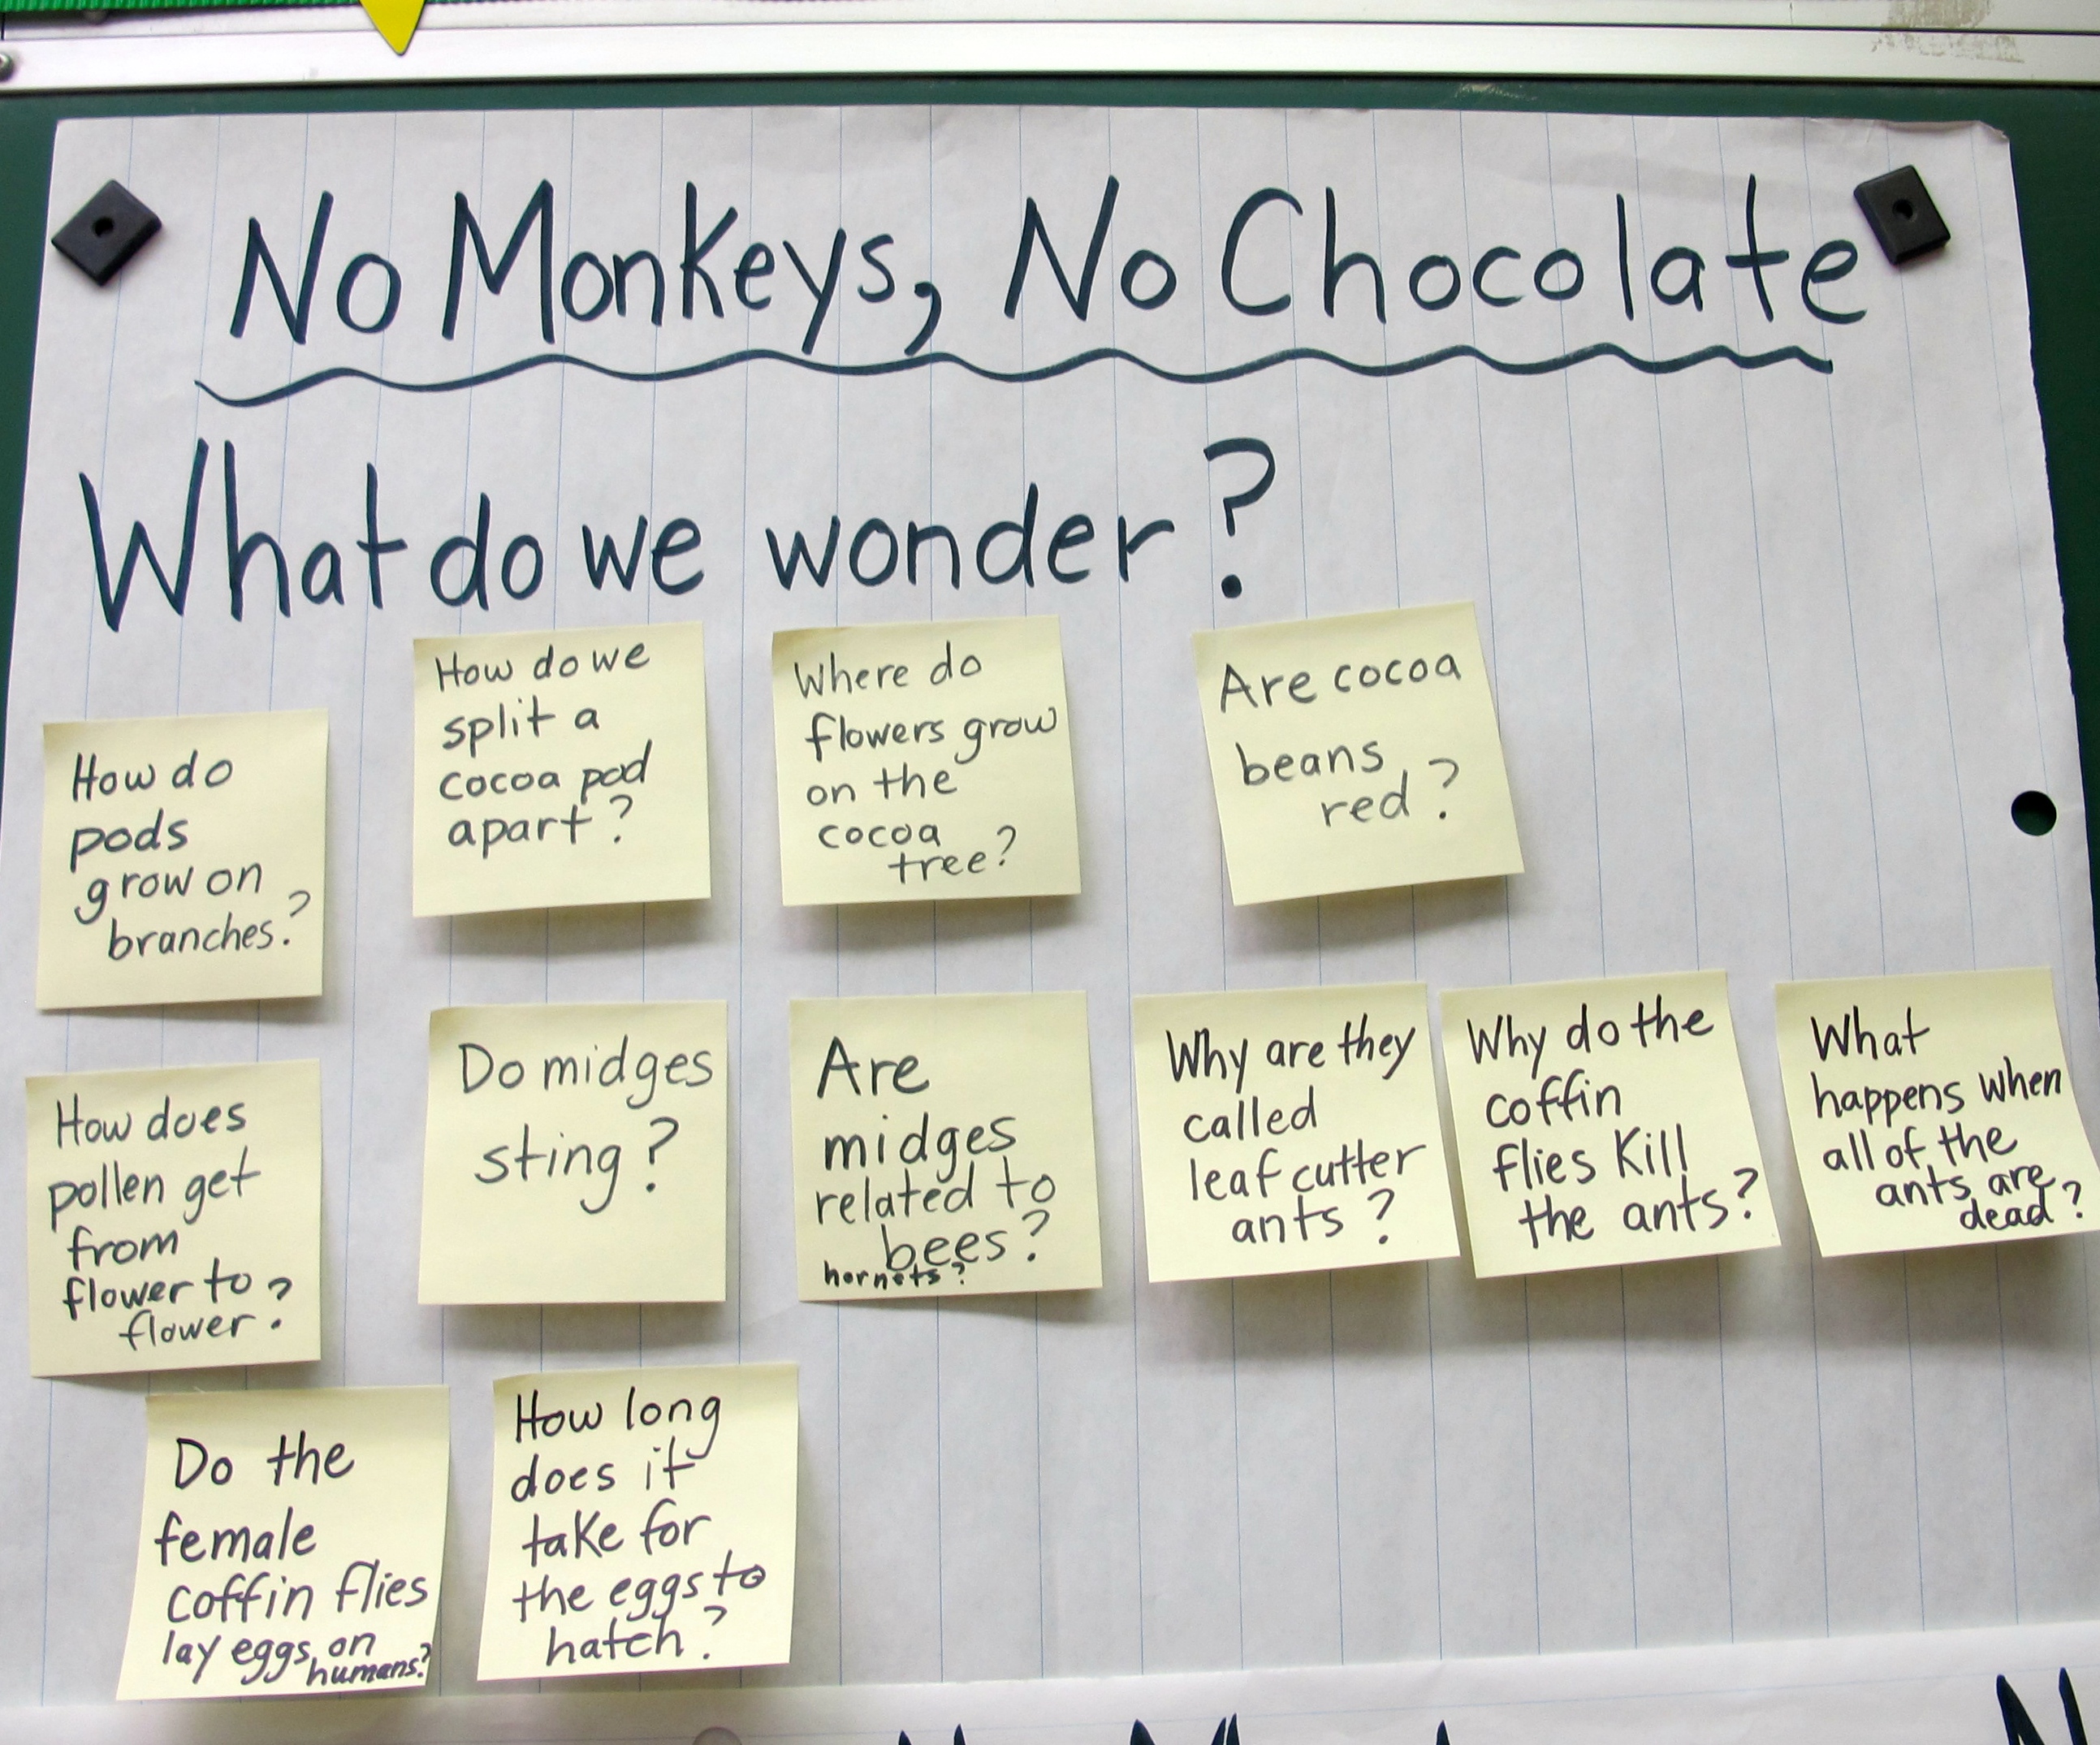 No Monkeys, No Chocolate
What do we wonder?
How do
pods
grow on
branches?
How do we
split a
cocoa pod
apart?
Where do
flowers grow
on the
cocoa
tree?
Are cocoa
beans
red?
How does
pollen get
from
flower to
flower?
Do midges
sting?
Are
midges
related to
bees?
hornets?
Why are they
called
leaf cutter
ants?
Why do the
coffin
flies Kill
the ants?
What
happens when
all of the
ants are
dead?
Do the
female
coffin flies
lay eggs on
humans?
How long
does it
take for
the eggs to
hatch?